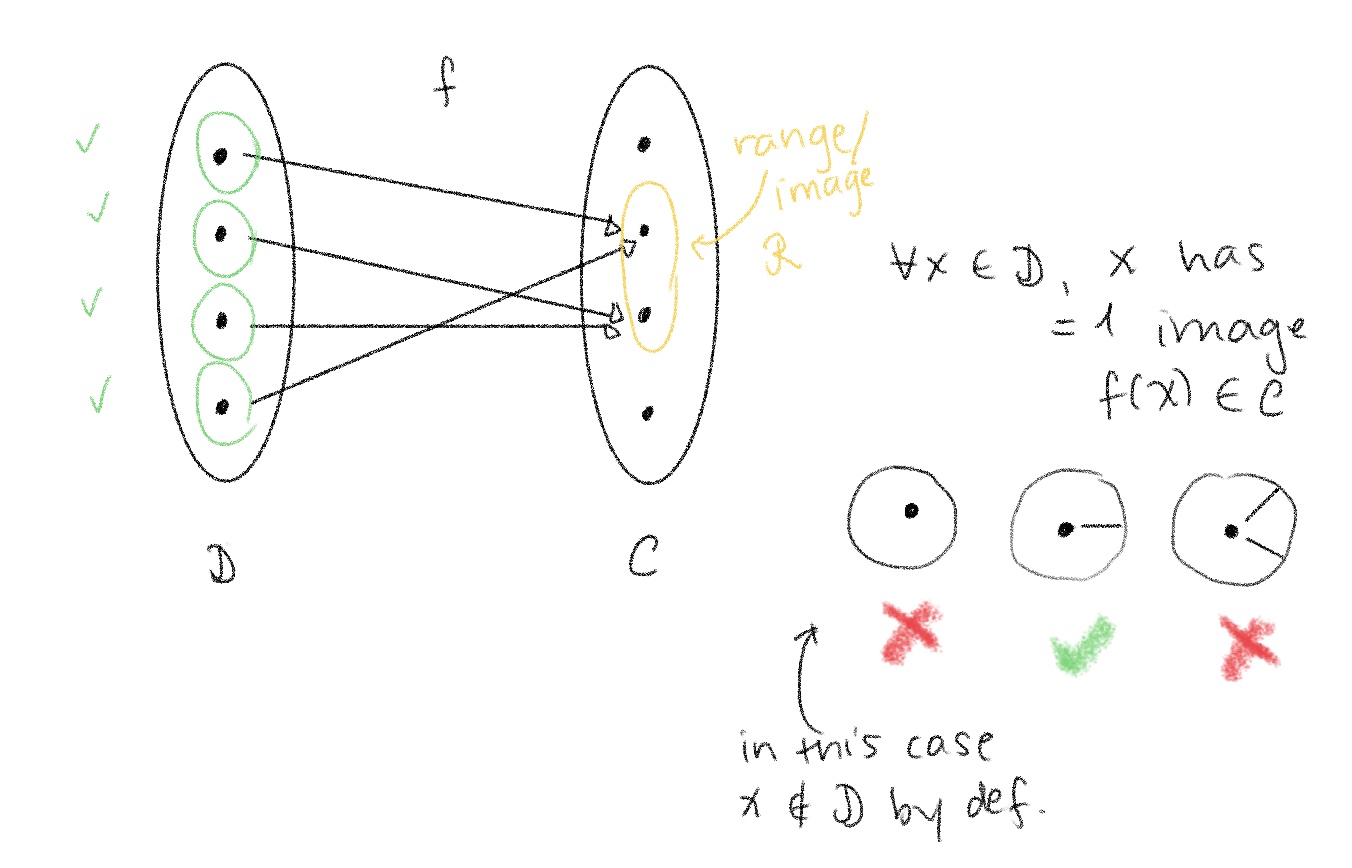 f
range/
image
R
∀x ∈ D, x has
= 1 image
f(x) ∈ C
D
C
in this case
x ∉ D by def.